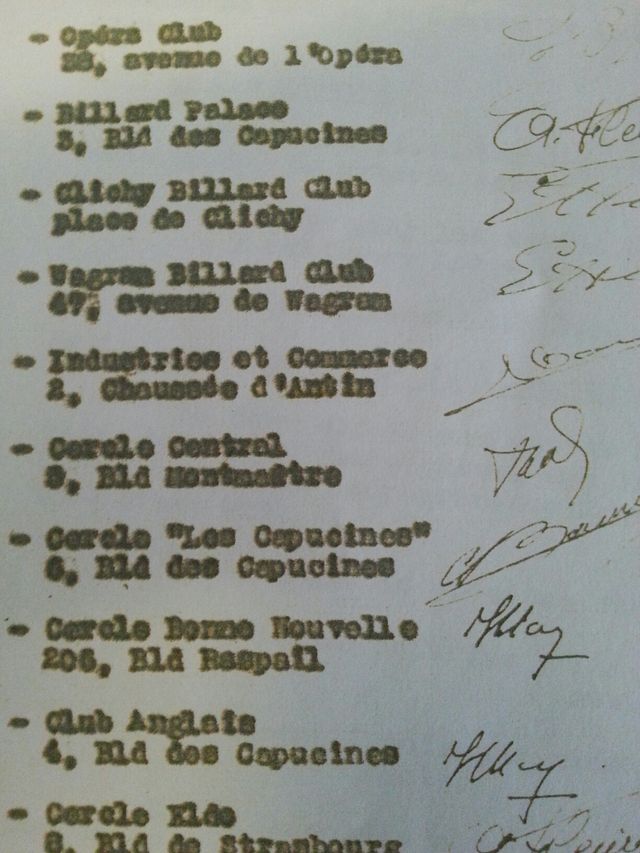 - Opéra Club
avenue de l'Opéra
- Billard Palace
3, Bld des Capucines
- Clichy Billard Club
place de Clichy
- Wagram Billard Club
47, avenue de Wagram
- Industries et Commerce
2, Chaussée d'Antin
- Cercle Central
Bld Montmartre
- Cercle "Les Capucines"
6, Bld des Capucines
- Cercle Bonne Nouvelle
206, Bld Raspail
- Club Anglais
4, Bld des Capucines
- Cercle
8, Bld de Strasbourg